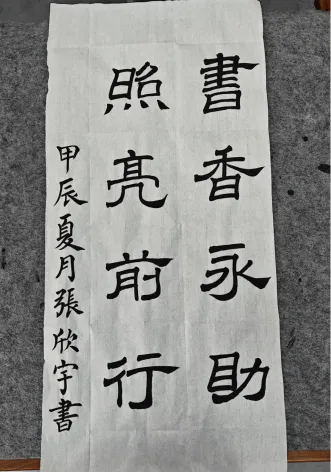 書香永助
照亮前行
甲辰夏月張欣宇書